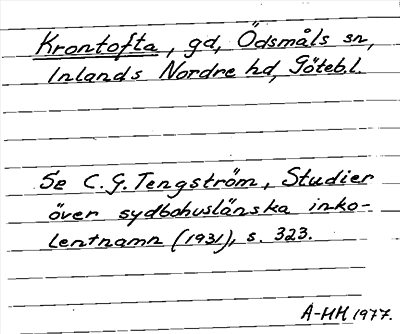 Krontofta, gd, Ödsmåls sn,
Inlands Nordre hd, Göteb.l.
Se C.G. Tengström, Studier
över sydbohuslänska inko-
lentnamn (1931), s. 323.
A-HH 1977.